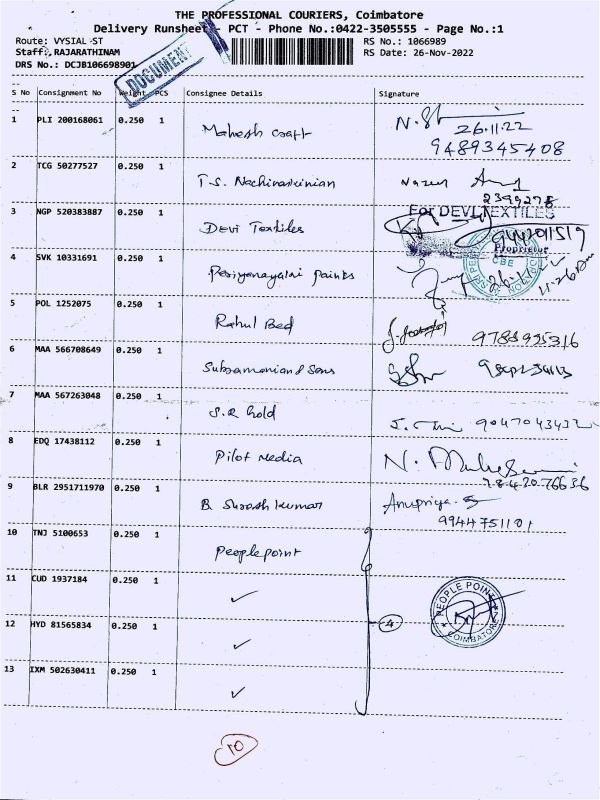 THE PROFESSIONAL COURIERS, Coimbatore
Delivery Runsheet - PCT - Phone No.:0422-3505555 - Page No.:1
Route: VYSIAL ST
RS No.: 1066989
Staff:,RAJARATHINAM
RS Date: 26-Nov-2022
DRS No.: DCJB106698901
DOCUMENT
S No Consignment No Weight PCS Consignee Details Signature
1 PLI 200168061 0.250 1 Mahesh craft N. 26.11.22
9489345408
2 TCG 50277527 0.250 1 T.S. Nachinarkinian
2399278
3 NGP 520383887 0.250 1 Devi Textiles For DEVI TEXTILES
9442011519
Proprietor
4 SVK 10331691 0.250 1 Periyanayaki paints
CBE
5 POL 1252075 0.250 1 Rahul Bed
6 MAA 566708649 0.250 1 Subramani and Sons
7 MAA 567263048 0.250 1 S.R Gold 9047043432
8 EDQ 17438112 0.250 1 Pilot Media N.
7842076636
9 BLR 2951711970 0.250 1 B. Suresh kumar Anupriya. S
9944751101
10 TNJ 5100653 0.250 1 Peoplepoint
11 CUD 1937184 0.250 1 ✓
PEOPLE POINT
COIMBATORE
12 HYD 81565834 0.250 1 ✓ 4
13 IXM 502630411 0.250 1 ✓
10